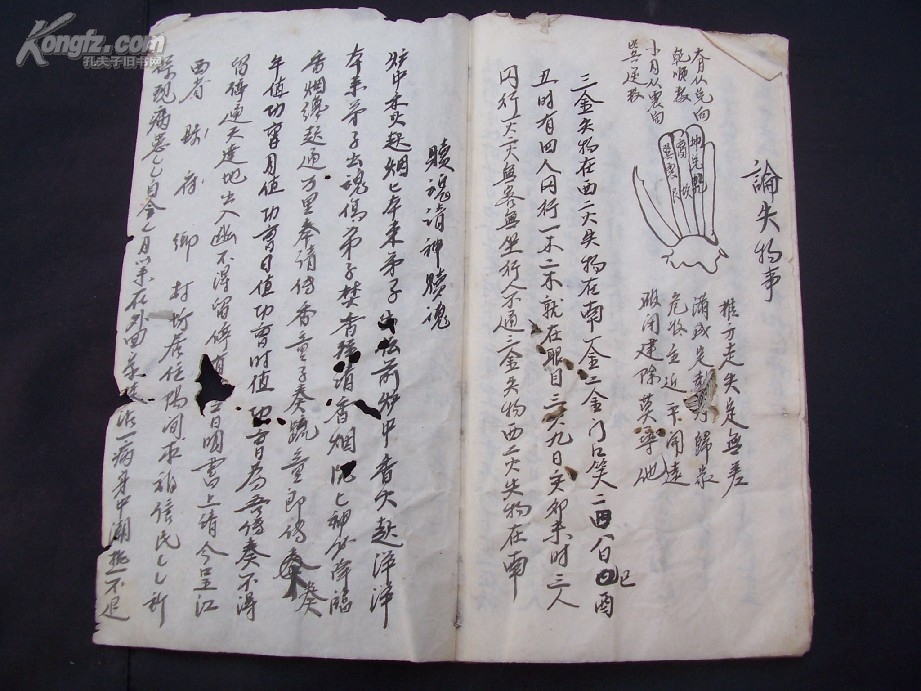 Kongfz.com
孔夫子旧书网
論失物事
推方走失定無差
滿成定執為歸家
危收並近平開遠
破閉建除莫尋他
春从兑向
乾順数
小月从震向
巽逆数
坤兑乾
離坎
巽震艮
三金失物在西二火失物在南一金二金门口笑二四八日四酉
巳
丑时有四人同行一木二木就在眼目三六九日亥卯未时三人
同行一火无客無坐行人不通三金失物西二火失物在南
贖魂請神贖魂
炉中香火起烟匕本来弟子出坛前炉中香火起洋洋
本来弟子出魂傷弟子焚香拜請香烟沉匕神必降臨
香烟纔起通万里奉請傳香童子奏疏童郎傳奏
年值功曹月值功曹日值功曹时值功曹為吾傳奏不得
留停通天達地出入幽不得留停有旨明書上請今呈江
西省縣府鄉村坊居住陽间求福信民匕匕祈
病患匕自今匕月以来在外回一病身中潮热不退